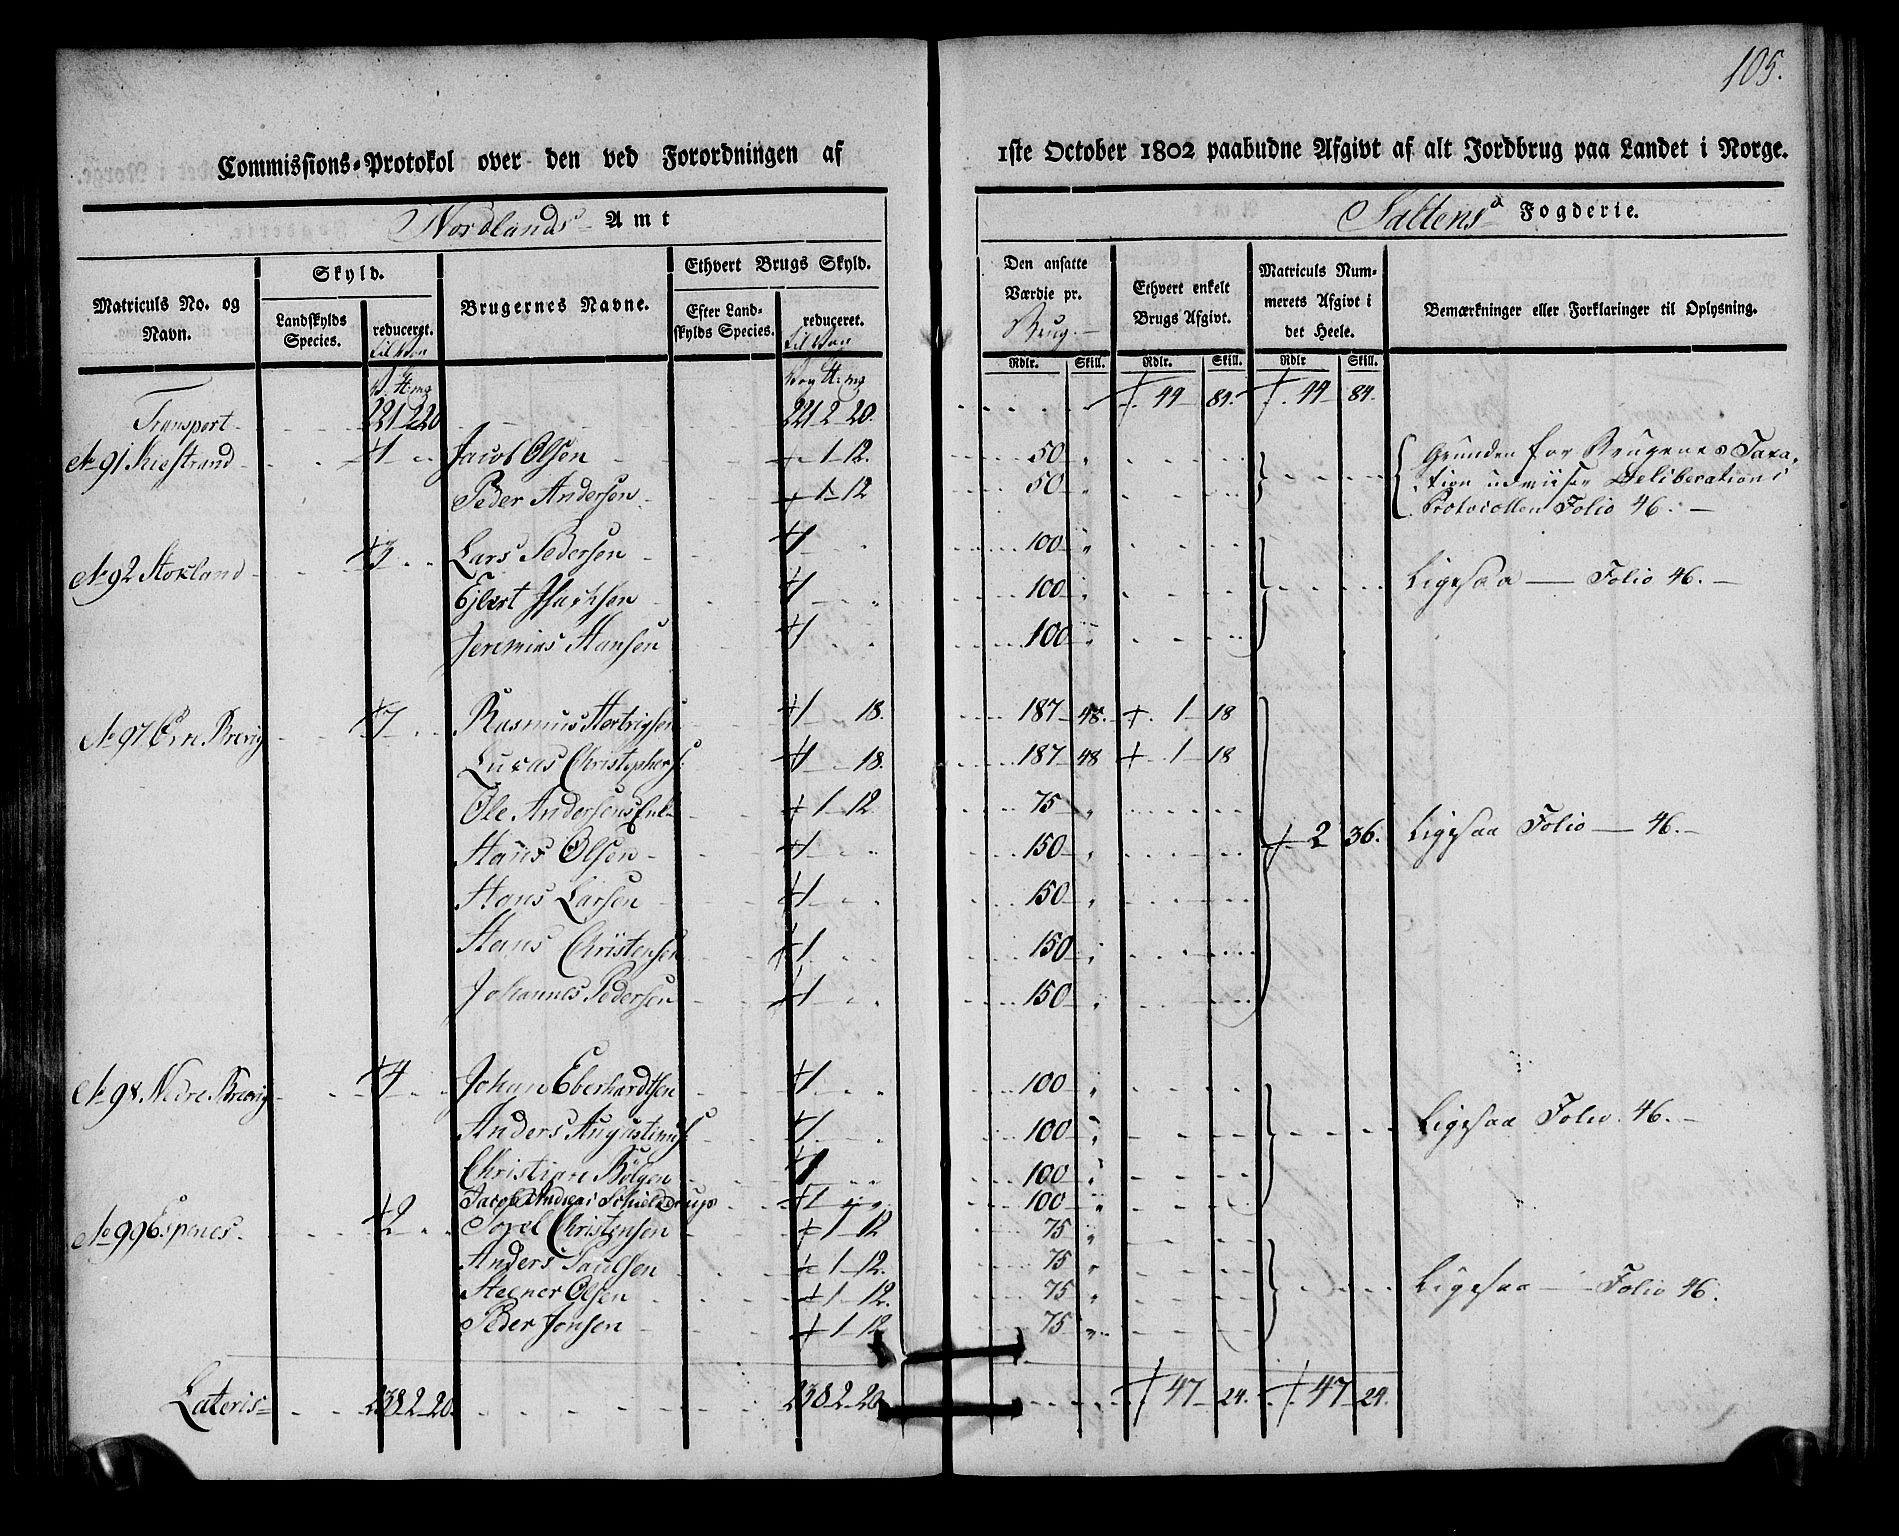 105.
Commissions-Protokol over den ved Forordningen af 1ste October 1802 paabudne Afgivt af alt Jordbrug paa Landet i Norge.
Nordlands Amt
Saltens Fogderie.
Matriculs No. og Navn.
Skyld.
Landskylds Species.
reduceret. til Vaag
Brugernes Navne.
Ethvert Brugs Skyld.
Efter Landskylds Species.
reduceret. til Vaag
Den ansatte Værdie pr. Brug.
Ethvert enkelt Brugs Afgivt.
Matriculs Nummerets Afgivt i det Heele.
Bemærkninger eller Forklaringer til Oplysning.
Rdlr. Skill. Rdlr. Skill. Rdlr Skill.
Transport 221 2 20 221 2 20. 44 84. 44 84.
No 91 1 Jacob Olsen 1 12. 50 Grunden for Brugenes Taxa-
Peder Andersen 1 12 50 tion udviiser Deliberations
Protocollen Folio 46.
No 92 Stokland 3 Lars Pedersen 1 100
Ejbert Isachsen 1 100 Ligesaa Folio 46.
Jeremias Hansen 1 100
No 97 Brevig 7 Rasmus Hertvigsen 1 18. 187 48. 1 18
Lucas Christophers: 1 18. 187 48 1 18
Ole Andersens Enk 1 12 75
Hans Olsen 1 150 2 36. Ligesaa Folio 46.
Hans Larsen 1 150
Hans Christensen 1 150
Johannes Pedersen 1 150
No 98 Nedre Brevig 4 Johan Eberhardtsen 1 100
Anders Augustinus: 1 100 Ligesaa Folio. 46.
Christian Bølgen 1 100
Jacob Andreas Schieldrups 1 100
No 99 Espenes 2 Christensen 1 12 75
Anders Paulsen 1 12. 75
Steener Olsen 1 12. 75 Ligesaa Folio 46.
Peder Jonsen 1 12 75
Lateris 238 2 20. 238 2 20 47 24. 47 24.